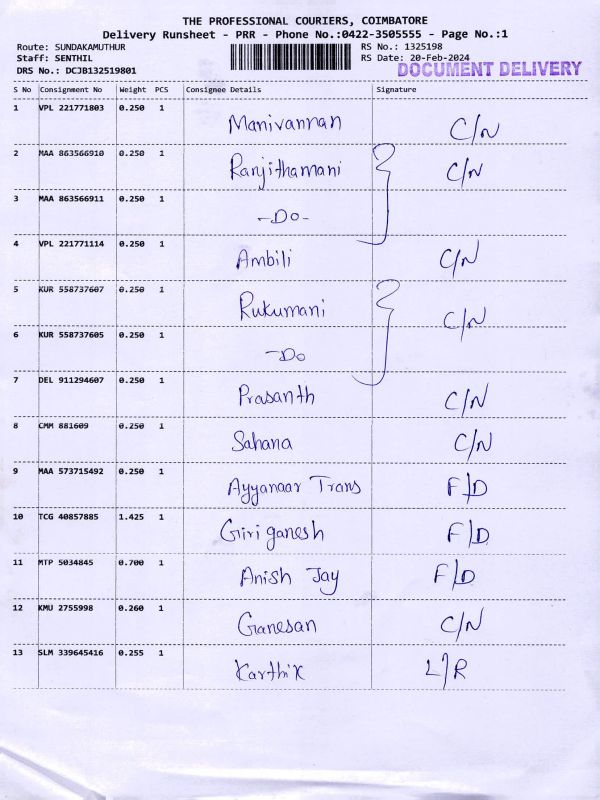 THE PROFESSIONAL COURIERS, COIMBATORE
Delivery Runsheet - PRR - Phone No.:0422-3505555 - Page No.:1
Route: SUNDAKAMUTHUR RS No.: 1325198
Staff: SENTHIL RS Date: 20-Feb-2024
DRS No.: DCJB132519801 DOCUMENT DELIVERY
S No Consignment No Weight PCS Consignee Details Signature
1 VPL 221771803 0.250 1 Manivannan C/N
2 MAA 863566910 0.250 1 Ranjithamani C/N
3 MAA 863566911 0.250 1 -Do-
4 VPL 221771114 0.250 1 Ambili C/N
5 KUR 558737607 0.250 1 Rukumani C/N
6 KUR 558737605 0.250 1 -Do
7 DEL 911294607 0.250 1 Prasanth C/N
8 CMM 881609 0.250 1 Sahana C/N
9 MAA 573715492 0.250 1 Ayyanaar Trans F/D
10 TCG 40857885 1.425 1 Giri ganesh F/D
11 MTP 5034845 0.700 1 Anish Jay F/D
12 KMU 2755998 0.260 1 Ganesan C/N
13 SLM 339645416 0.255 1 Karthik L/R